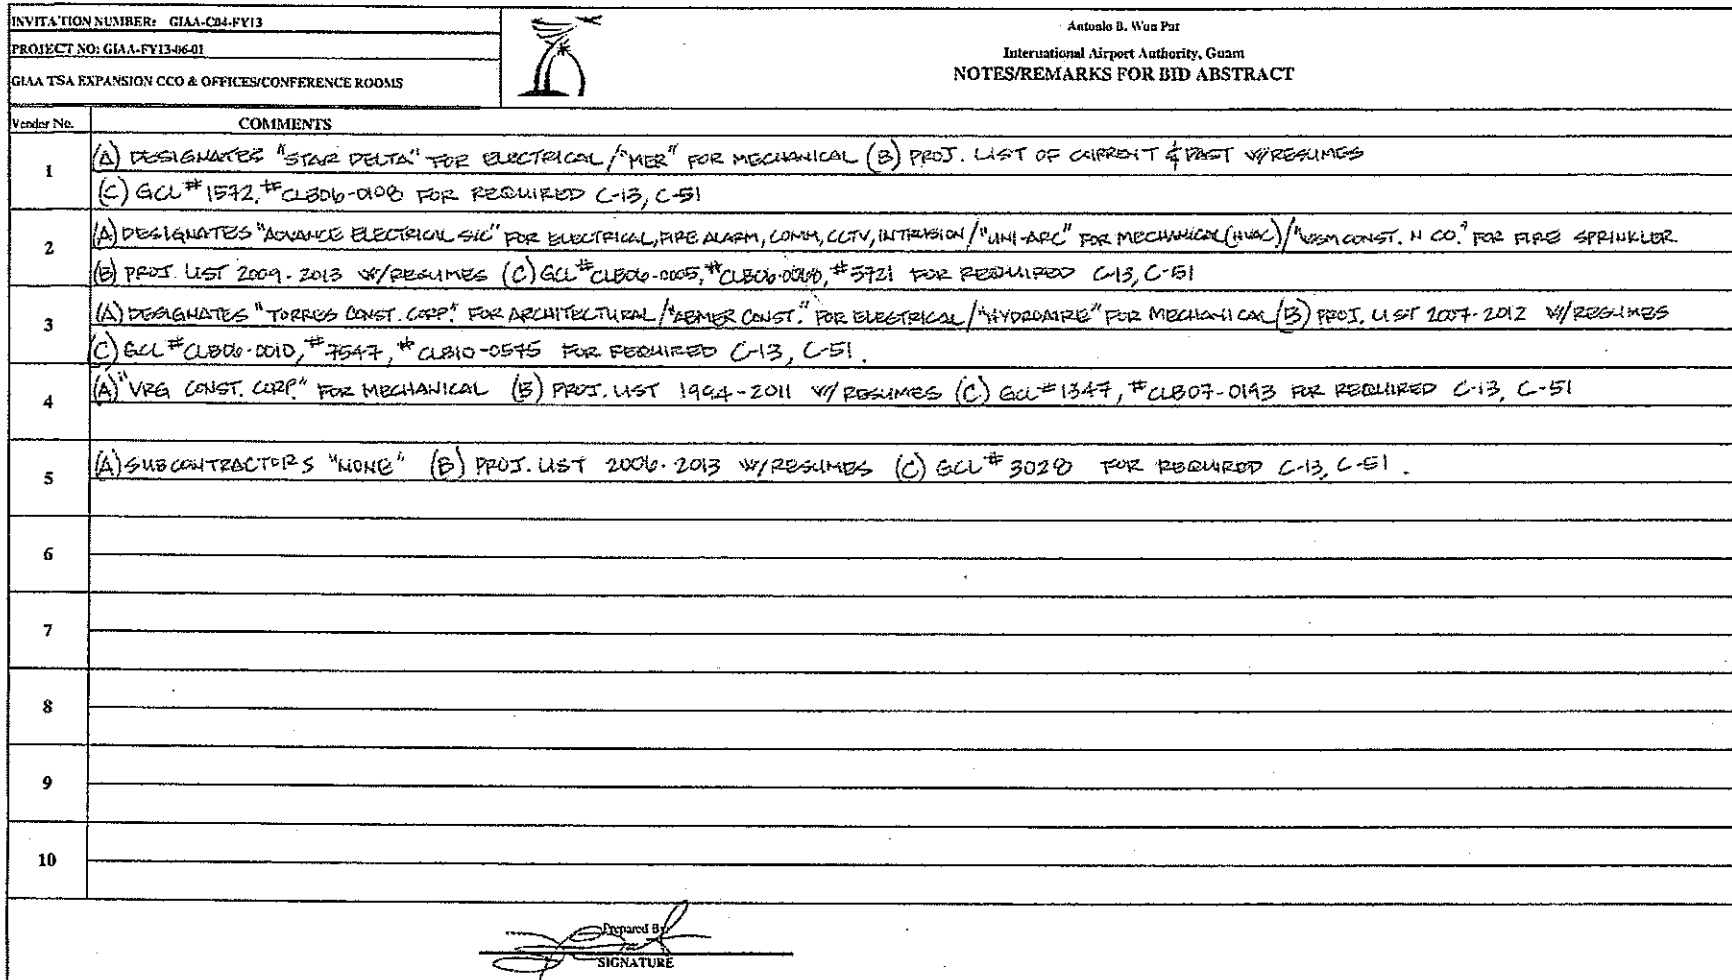 INVITATION NUMBER: GIAA-C04-FY13
PROJECT NO: GIAA-FY13-06-01
GIAA TSA EXPANSION CCO & OFFICES/CONFERENCE ROOMS
Antonio B. Won Pat
International Airport Authority, Guam
NOTES/REMARKS FOR BID ABSTRACT
Vendor No. COMMENTS
1
(A) DESIGNATES "STAR DELTA" FOR ELECTRICAL/"MER" FOR MECHANICAL (B) PROJ. LIST OF CURRENT & PAST W/RESUMES
(C) GCL #1572, #CLB06-0108 FOR REQUIRED C-13, C-51
2
(A) DESIGNATES "ADVANCE ELECTRICAL FOR ELECTRICAL, FIRE ALARM, COMM, CCTV, INTRUSION/"UNI-ARC" FOR MECHANICAL (HVAC)/ CONST. N CO." FOR FIRE SPRINKLER
(B) PROJ. LIST 2009-2013 W/RESUMES (C) GCL #CLB06-0005, #3721 FOR REQUIRED C-13, C-51
3
(A) DESIGNATES "TORRES CONST. CORP." FOR ARCHITECTURAL/ CONST." FOR ELECTRICAL/"HYDROAIRE" FOR MECHANICAL (B) PROJ. LIST 2007-2012 W/RESUMES
(C) GCL #CLB06-0010, #7547, #CLB10-0575 FOR REQUIRED C-13, C-51.
4
(A) "VRG CONST. CORP." FOR MECHANICAL (B) PROJ. LIST 1994-2011 W/ RESUMES (C) GCL #1347, #CLB07-0193 FOR REQUIRED C-13, C-51
5
(A) SUBCONTRACTORS "NONE" (B) PROJ. LIST 2006-2013 W/RESUMES (C) GCL #3028 FOR REQUIRED C-13, C-51.
6
7
8
9
10
Prepared By
SIGNATURE